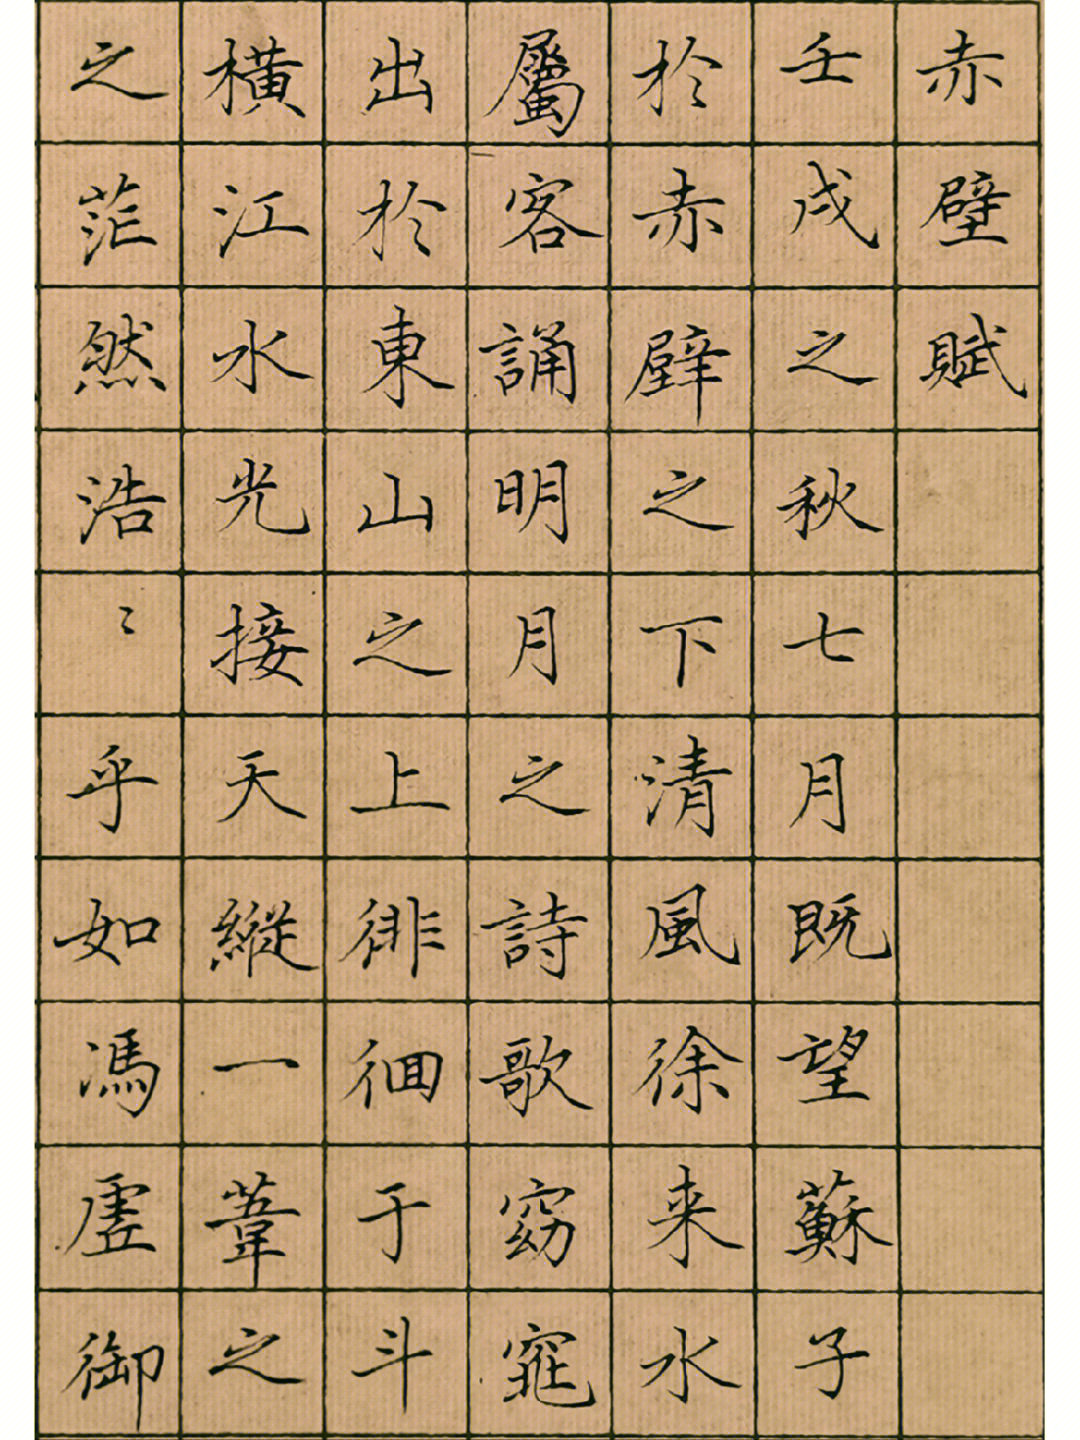 赤壁賦
壬戌之秋七月既望蘇子
於赤壁之下清風徐来水
屬客誦明月之詩歌窈窕
出於東山之上徘徊于斗
横江水光接天縱一葦之
之茫然浩〻乎如馮虗御